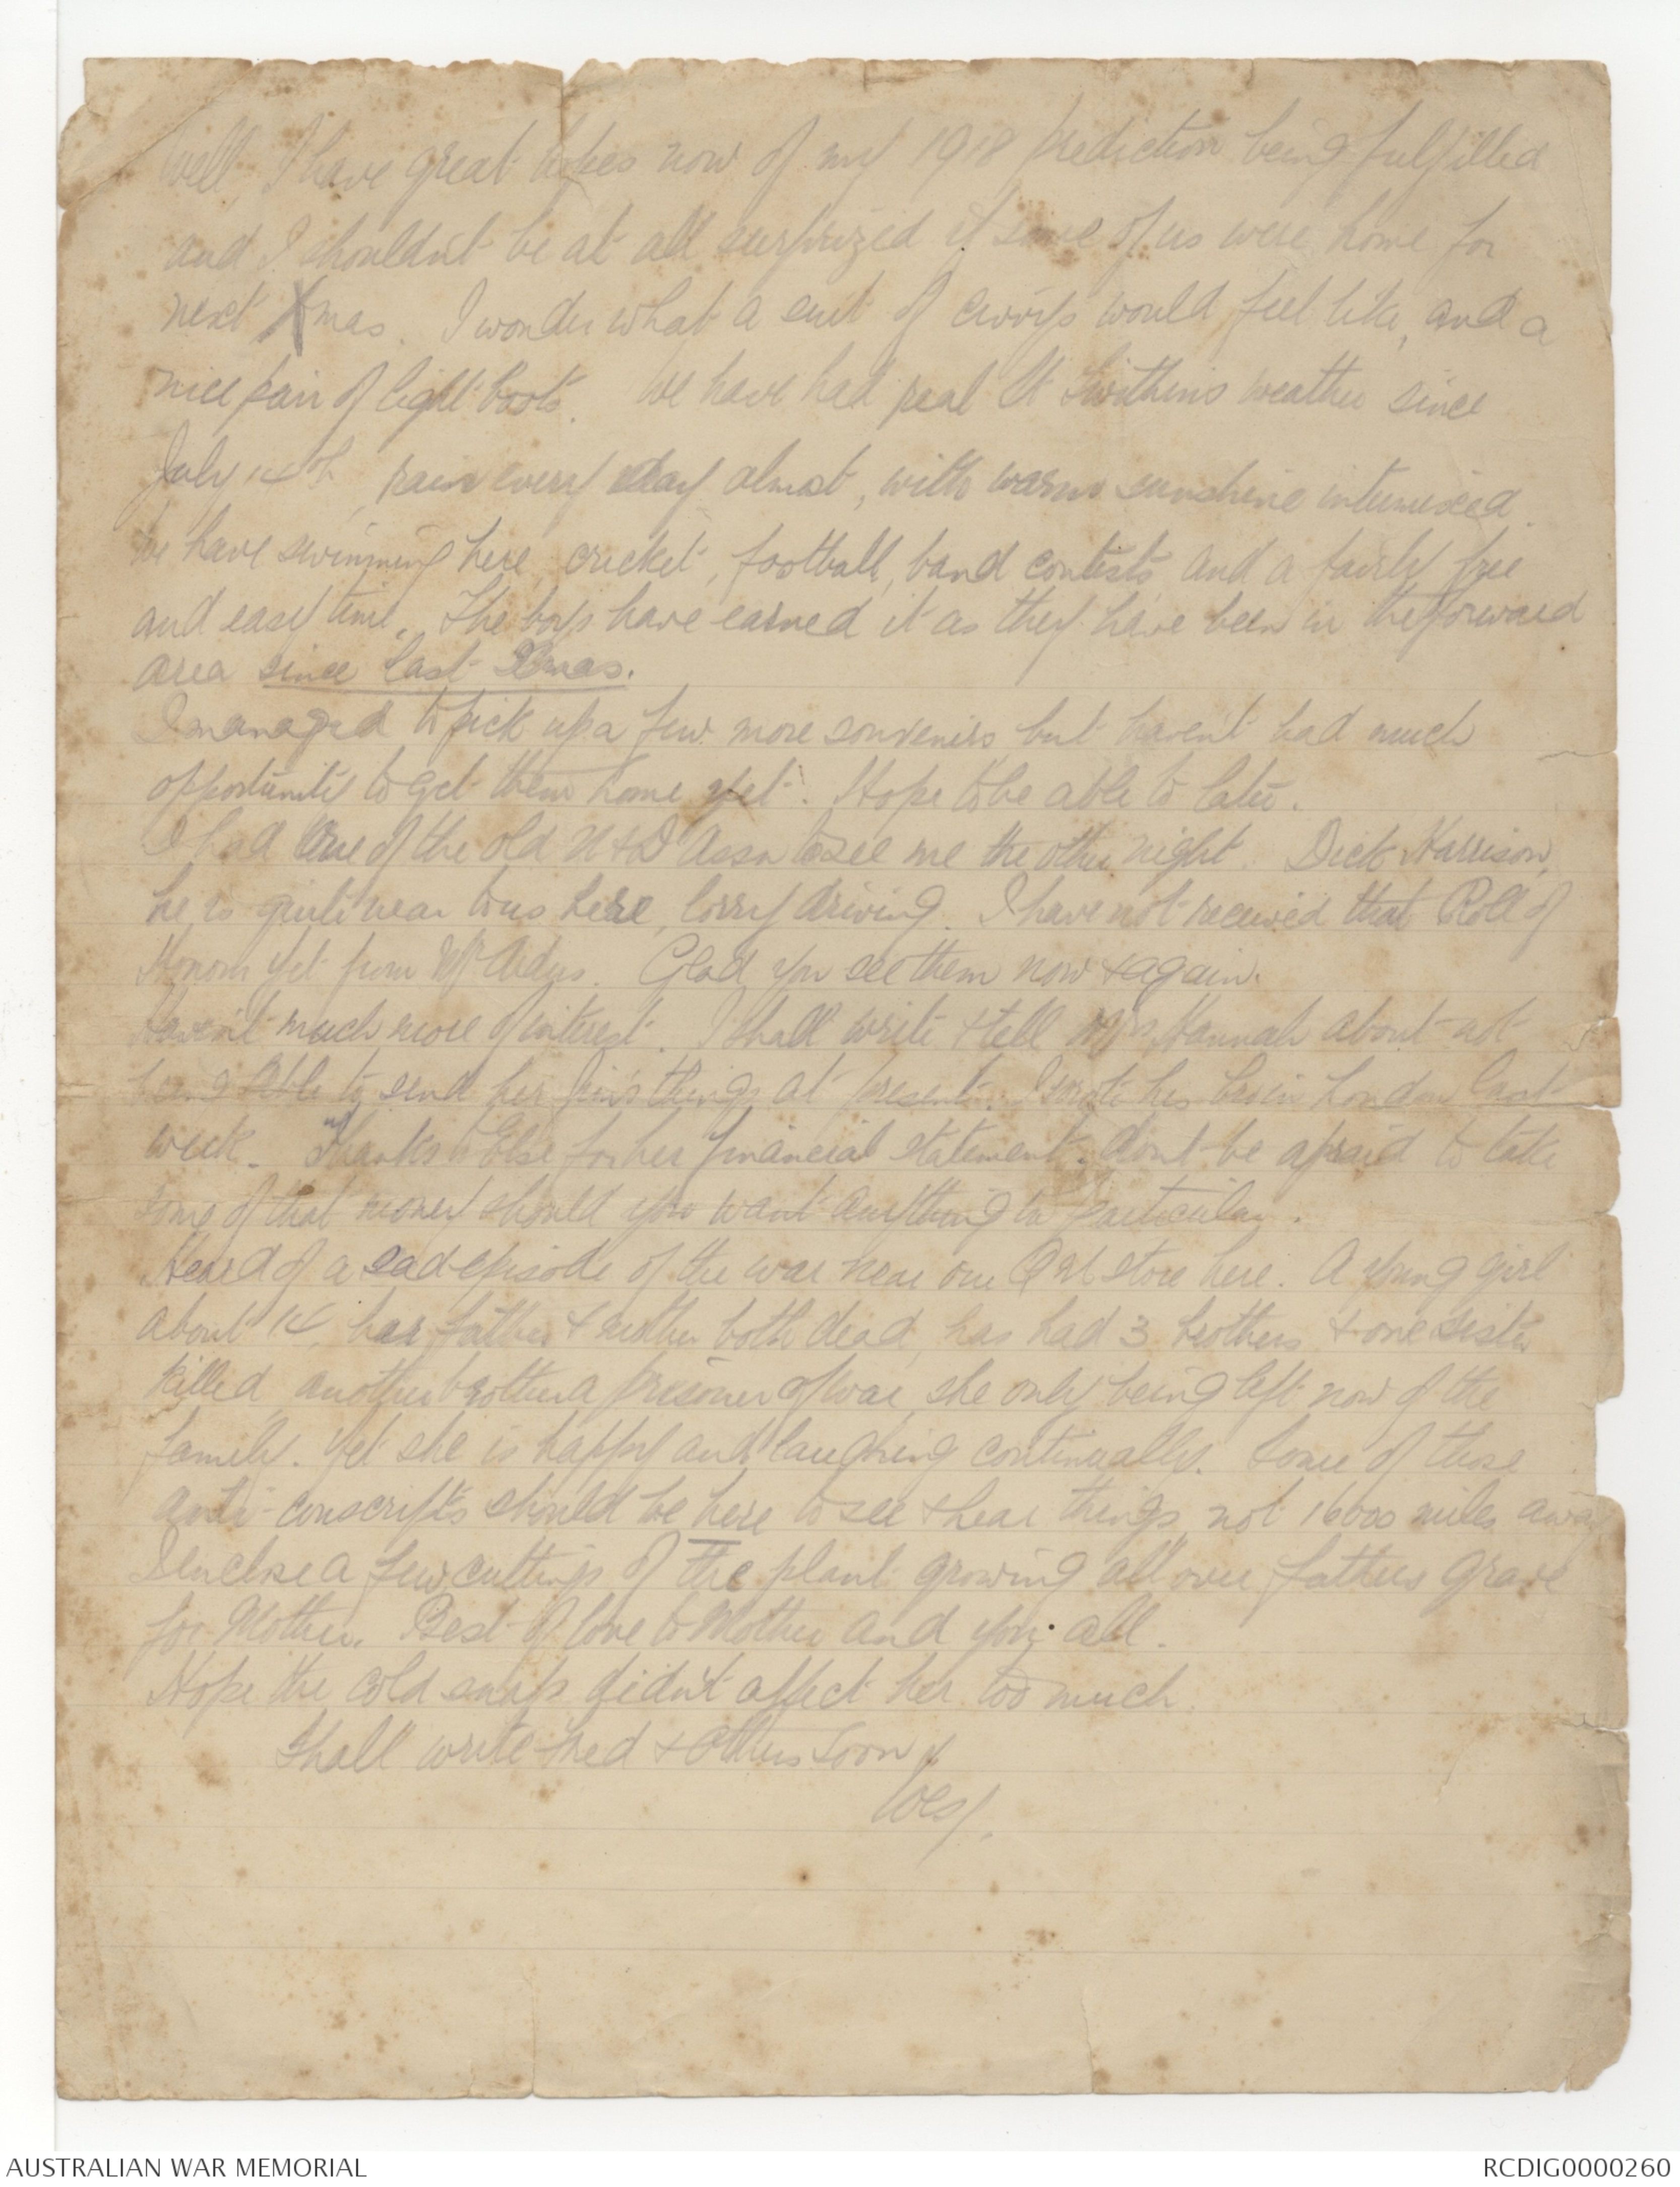 Well, I have great hopes now of my 1918 prediction being fulfilled
and I shouldn't be at all surprized if some of us were home for
next Xmas. I wonder what a suit of civvys would feel like, and a
nice pair of light boots. We have had real St Swithins weather since
July 14th, rain every day almost, with warm sunshine intermixed.
We have swimming here, cricket, football, band contests and a fairly free
and easy time. The boys have earned it as they have been in the forward
area since last Xmas.
I managed to pick up a few more souvenirs but haven't had much
opportunity to get them home yet. Hope to be able to later.
I had one of the old Assn to see me the other night. Dick Harrison,
he is quite near to us here, lorry driving. I have not received that Roll of
Honour yet from Glad you see them now & again.
Haven't much more of interest. I shall write & tell Mrs Hannah about not
being able to send her things at present. I wrote her in London last
week. Thanks to Else for her financial statement. Don't be afraid to take
some of that money should you want anything in particular.
Heard of a sad episode of the war near our QM store here. A young girl
about 14, has father & mother both dead, has had 3 brothers & one sister
killed, another brother a prisoner of war, she only being left now of the
family. Yet she is happy and laughing continually. Some of those
anti-conscripts should be here to see & hear things, not 16000 miles away
I enclose a few cuttings of the plant growing all over fathers grave
for Mother. Best of love to Mother and you all.
Hope the cold snap didn't affect her too much.
Shall write & others soon
Wesy.
AUSTRALIAN WAR MEMORIAL
RCDIG0000260